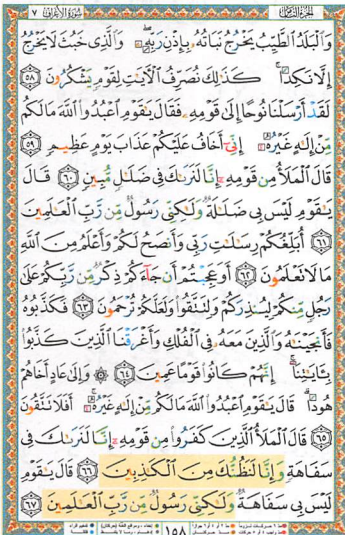 الجزء الثامن ٧ سورة الأعراف
وَالْبَلَدُ الطَّيِّبُ يَخْرُجُ نَبَاتُهُ بِإِذْنِ رَبِّهِ ۖ وَالَّذِي خَبُثَ لَا يَخْرُجُ
إِلَّا نَكِدًا ۚ كَذَٰلِكَ نُصَرِّفُ الْآيَاتِ لِقَوْمٍ يَشْكُرُونَ ٥٨
لَقَدْ أَرْسَلْنَا نُوحًا إِلَىٰ قَوْمِهِ فَقَالَ يَا قَوْمِ اعْبُدُوا اللَّهَ مَا لَكُم
مِّنْ إِلَٰهٍ غَيْرُهُ إِنِّي أَخَافُ عَلَيْكُمْ عَذَابَ يَوْمٍ عَظِيمٍ ٥٩
قَالَ الْمَلَأُ مِن قَوْمِهِ إِنَّا لَنَرَاكَ فِي ضَلَالٍ مُّبِينٍ ٦٠ قَالَ
يَا قَوْمِ لَيْسَ بِي ضَلَالَةٌ وَلَٰكِنِّي رَسُولٌ مِّن رَّبِّ الْعَالَمِينَ
٦١ أُبَلِّغُكُمْ رِسَالَاتِ رَبِّي وَأَنصَحُ لَكُمْ وَأَعْلَمُ مِنَ اللَّهِ
مَا لَا تَعْلَمُونَ ٦٢ أَوَعَجِبْتُمْ أَن جَاءَكُمْ ذِكْرٌ مِّن رَّبِّكُمْ عَلَىٰ
رَجُلٍ مِّنكُمْ لِيُنذِرَكُمْ وَلِتَتَّقُوا وَلَعَلَّكُمْ تُرْحَمُونَ ٦٣ فَكَذَّبُوهُ
فَأَنجَيْنَاهُ وَالَّذِينَ مَعَهُ فِي الْفُلْكِ وَأَغْرَقْنَا الَّذِينَ كَذَّبُوا
بِآيَاتِنَا ۚ إِنَّهُمْ كَانُوا قَوْمًا عَمِينَ ٦٤ ۞ وَإِلَىٰ عَادٍ أَخَاهُمْ
هُودًا ۗ قَالَ يَا قَوْمِ اعْبُدُوا اللَّهَ مَا لَكُم مِّنْ إِلَٰهٍ غَيْرُهُ ۚ أَفَلَا تَتَّقُونَ
٦٥ قَالَ الْمَلَأُ الَّذِينَ كَفَرُوا مِن قَوْمِهِ إِنَّا لَنَرَاكَ فِي
سَفَاهَةٍ وَإِنَّا لَنَظُنُّكَ مِنَ الْكَاذِبِينَ ٦٦ قَالَ يَا قَوْمِ
لَيْسَ بِي سَفَاهَةٌ وَلَٰكِنِّي رَسُولٌ مِّن رَّبِّ الْعَالَمِينَ ٦٧
١٥٨